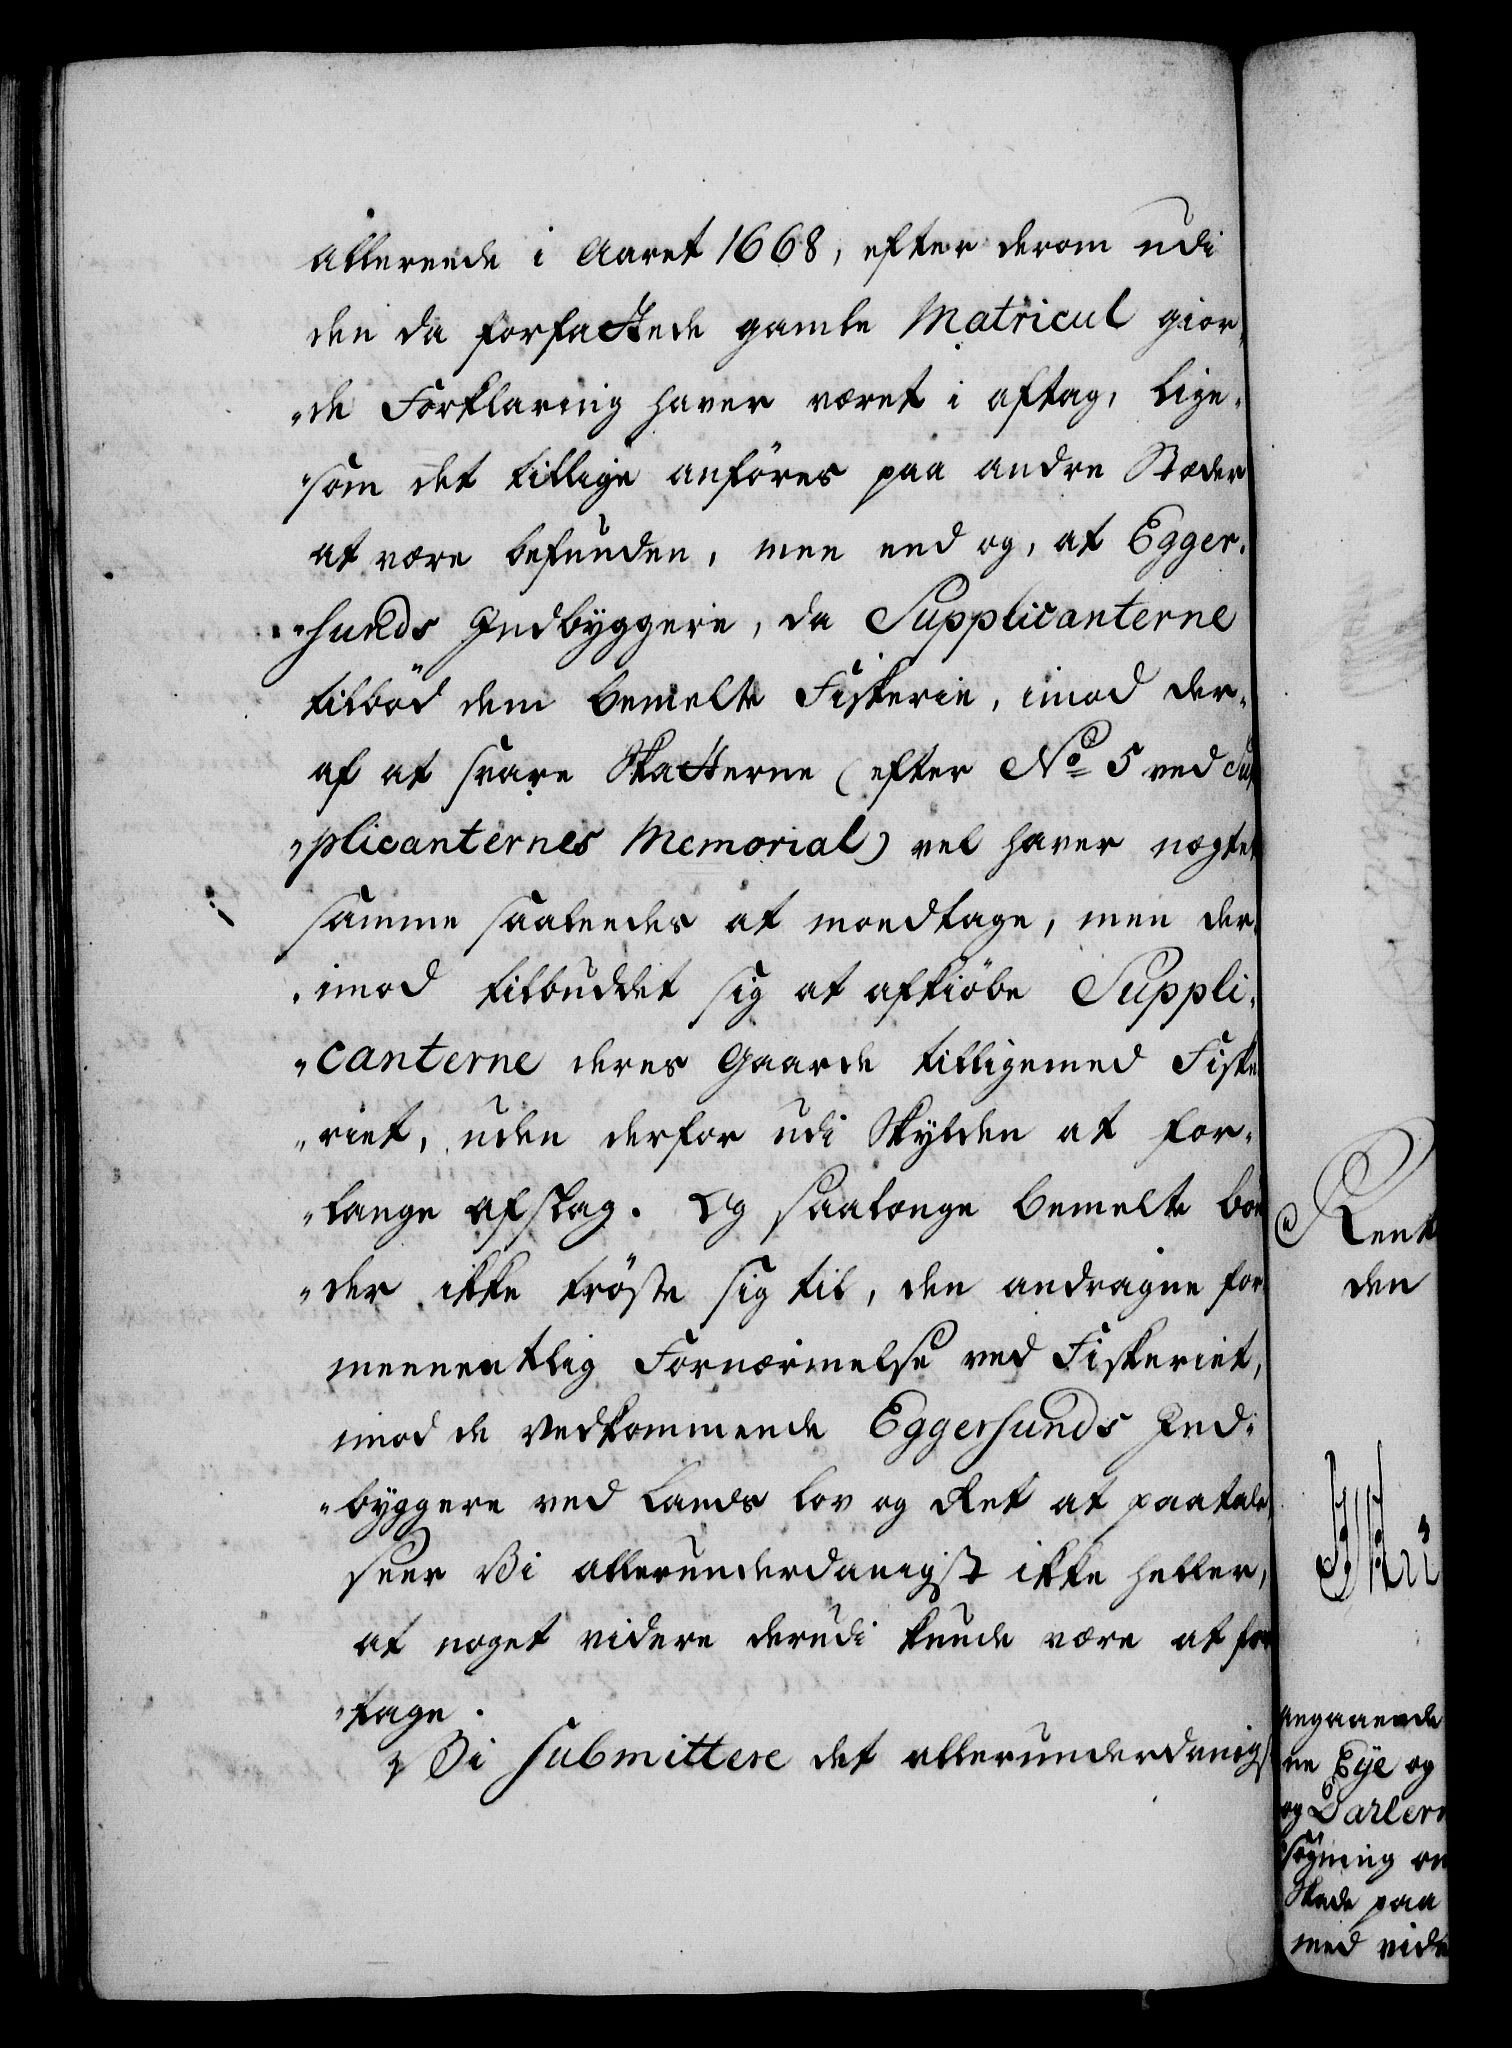 allereede i Aaret 1668, efter derom udi
den da forfattede gamle Matricul gior-
"de Forklaring haver været i aftag, lige-
"som det tillige anföres paa andre Stæder
at være befunden, men end og, at Egger-
"sunds Indbyggere, da Supplicanterne
tilböd dem bemelte Fiskerie, imod der-
af at svare Skatterne (efter No 5 ved Sup
"plicanternes Memorial) vel haver nægtet
samme saaleedes at modtage, men der-
"imod tilbuddet sig at afkiöbe Suppli-
"canterne deres Gaarde tilligemed Fiske
"riet, uden derfor udi Skylden at for-
"lange afslag. Og saalænge bemelte bön
"der ikke tröste sig til, den andragne for
meenentlig Fornærmelse ved Fiskeriet,
imod de vedkommende Eggersunds Ind-
"byggere ved Lands Lov og Ret at paatale,
seer Vi allerunderdanigst ikke heller,
at noget videre derudi kunde være at fore
"tage.
Vi submittere det allerunderdanigst
Rent
den
angaaende
Eye og
og
paa
med vide